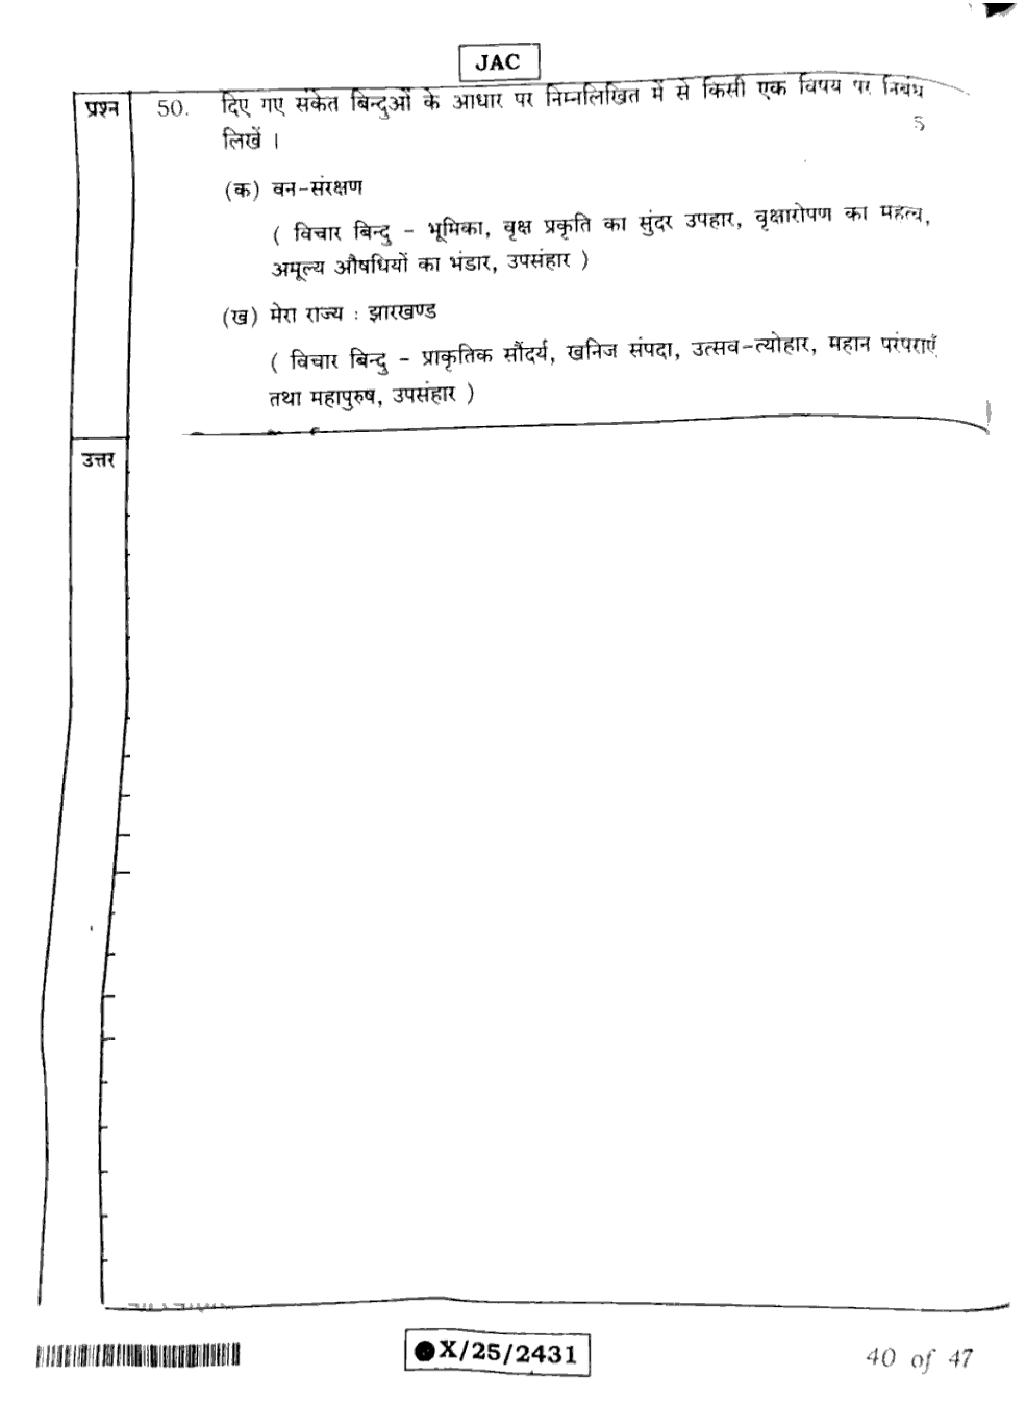 JAC
प्रश्न
50. दिए गए संकेत बिन्दुओं के आधार पर निम्नलिखित में से किसी एक विषय पर निबंध
5
लिखें ।
(क) वन-संरक्षण
( विचार बिन्दु - भूमिका, वृक्ष प्रकृति का सुंदर उपहार, वृक्षारोपण का महत्व,
अमूल्य औषधियों का भंडार, उपसंहार )
(ख) मेरा राज्य : झारखण्ड
( विचार बिन्दु - प्राकृतिक सौंदर्य, खनिज संपदा, उत्सव-त्योहार, महान परंपराएँ
तथा महापुरुष, उपसंहार )
उत्तर
X/25/2431
40 of 47